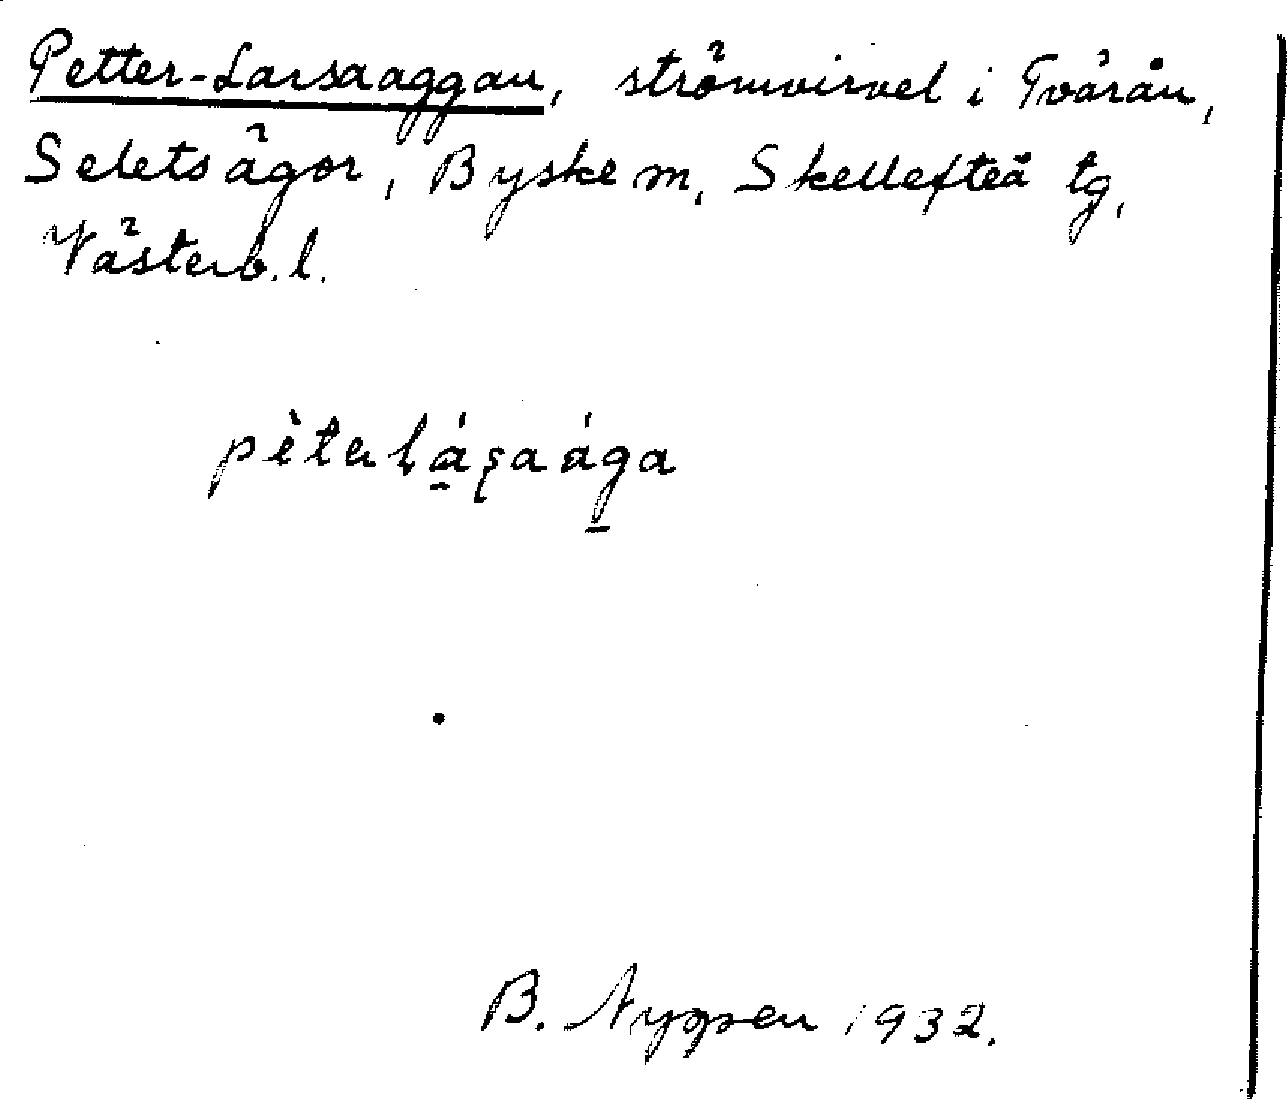 Petter-Larsaaggan, strömvirvel i Tvärån,
Selets ägor, Byske sn, Skellefteå tg,
Västerb. l.
pètɐlása ága
B. Nyggen 1932.